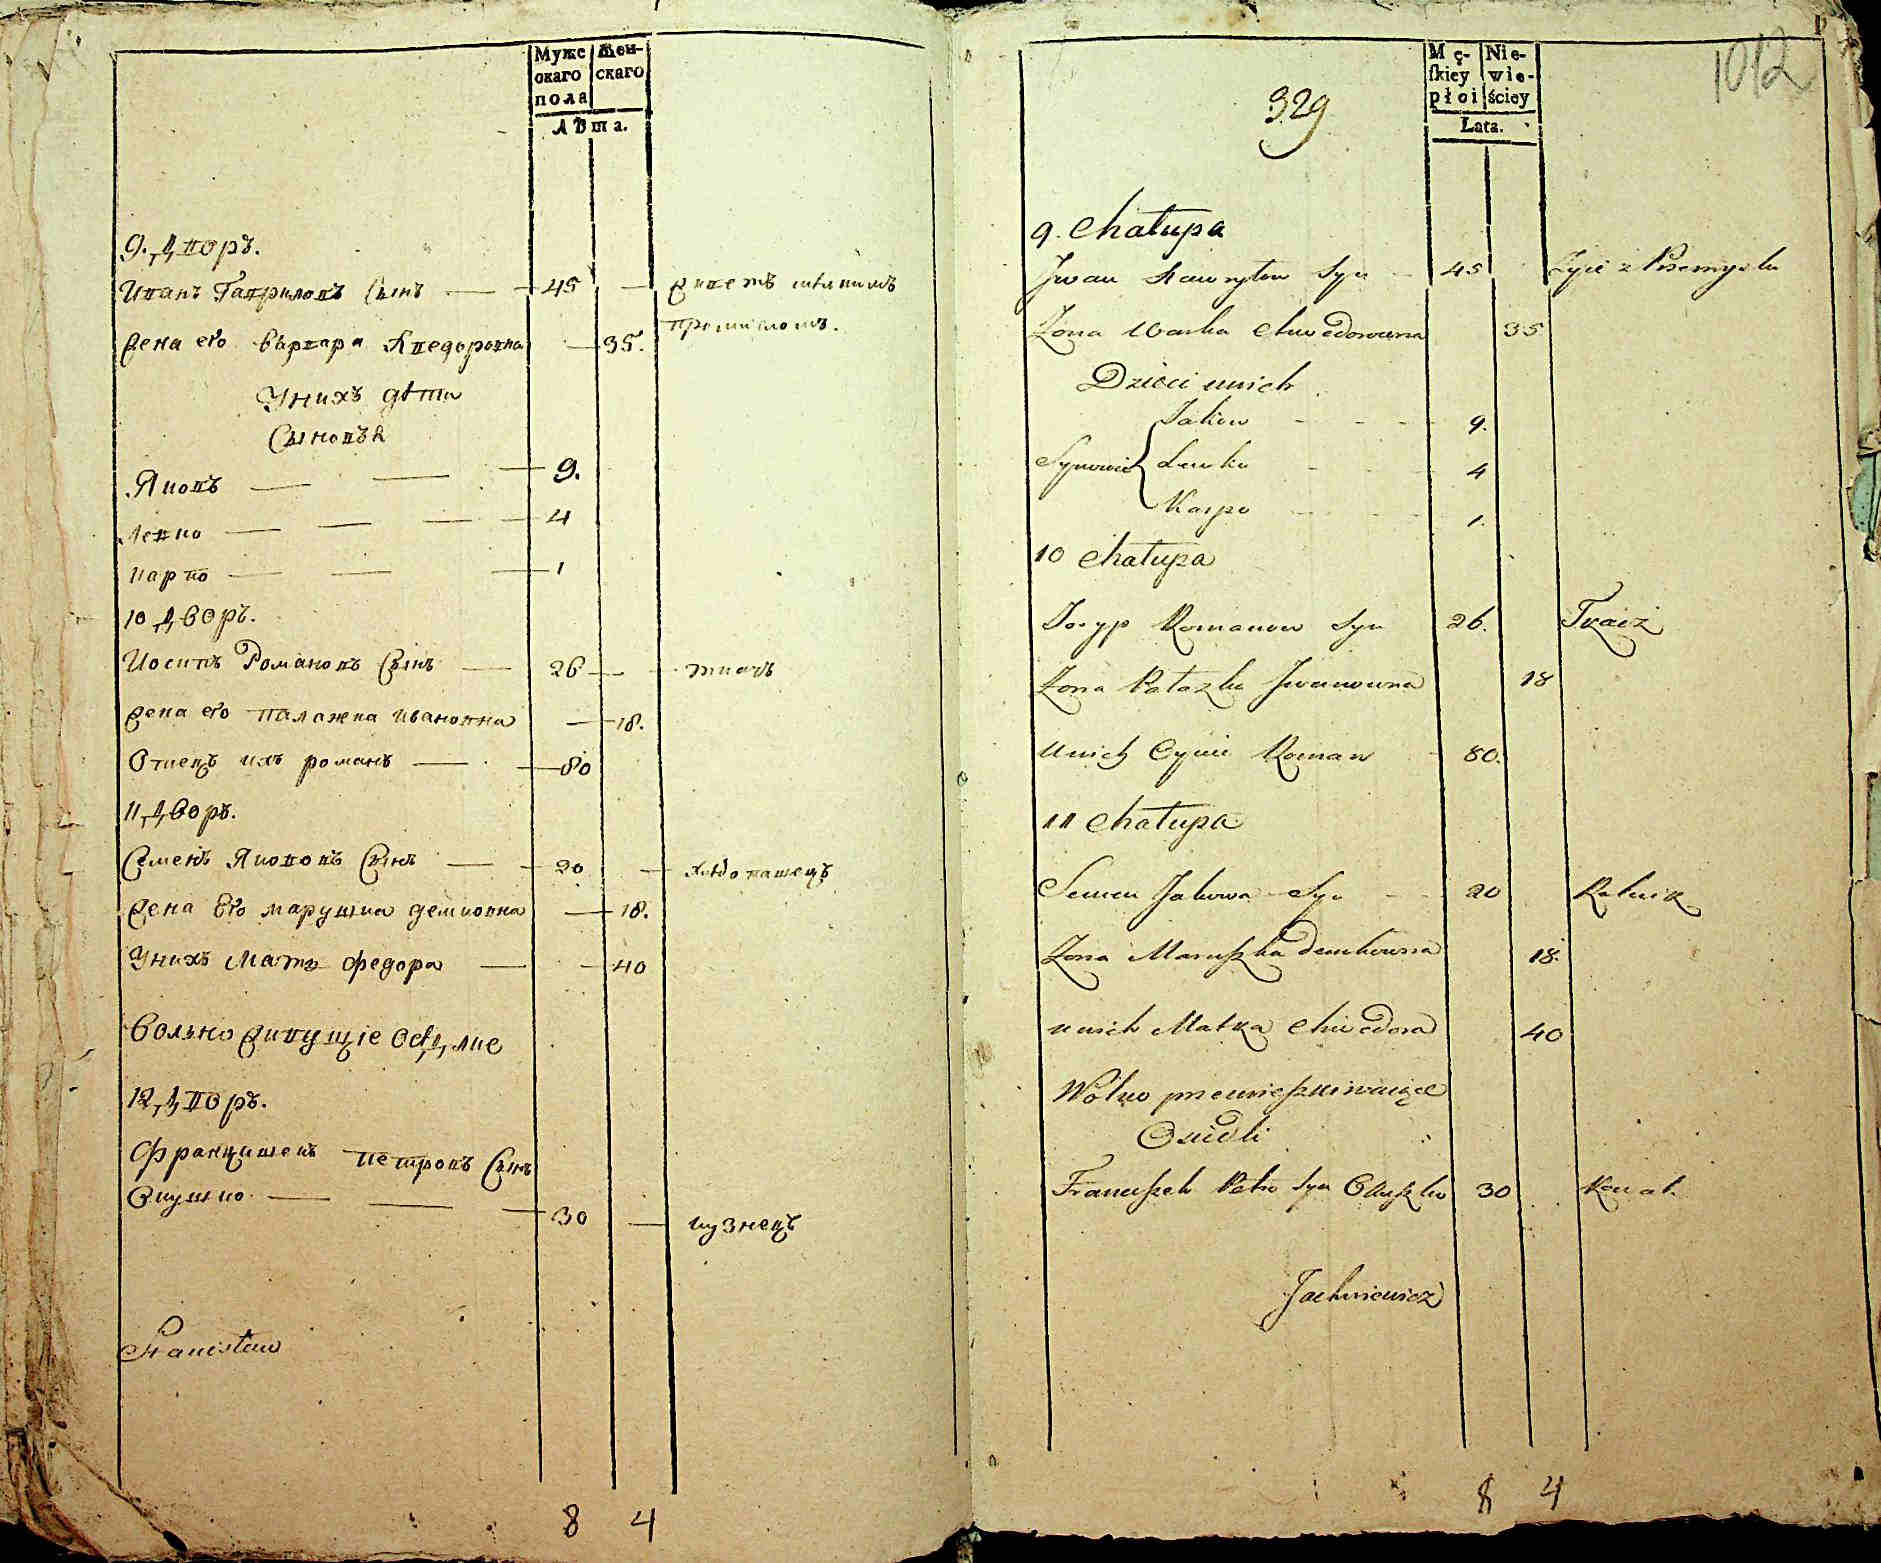 Мужс
скаго
пола
Жен-
скаго
Лѣта.
9. Дворъ.
Иванъ Гавриловъ Сынъ — 45 — живетъ
промысломъ.
Жена его Варвара Хведоровна — 35.
У нихъ дѣти
Сыновья
Яковъ — — 9.
Левко — — — 4
Карпо — — — 1
10 Дворъ.
Иосипъ Романовъ Сынъ — 26 — ткачъ
Жена его Палажка Ивановна — 18.
Отнецъ ихъ Романъ — 80
11 Дворъ.
Семенъ Якововъ Сынъ — 20 — хлѣбопашецъ
Жена Его Марушка Демковна — 18.
У нихъ Мать Федора — 40
Вольно живущіе осѣдлие
12 Дворъ.
Францишекъ Петровъ Сынъ
— — — 30 — кузнецъ
Stanisław
8 4
1012
329
Mę-
ſkiey
płci
Nie-
wie-
ściey
Lata.
9. Chałupa
Jwan Hawryłow Syn - 45 Życie z Przemysłu
Żona Warka Chwedorowna 35
Dzieci unich
Jakow - - - 9.
Synowie Lewko - - 4
Karpo - - 1
10 Chałupa
Josyp Romanow Syn 26. Tkacz
Żona Pałażka Jwanowna 18
Unich Oyciec Roman 80.
11 Chałupa
Semen Jakowa Syn - - 20 Rolnik
Żona Maruszka Demkowna 18.
unich Matka Chwedora 40
Wolno przemieszkiwaiące
Osiedli
Franciszek Petro Syn 30 Kowal.
Jachniewicz
8 4